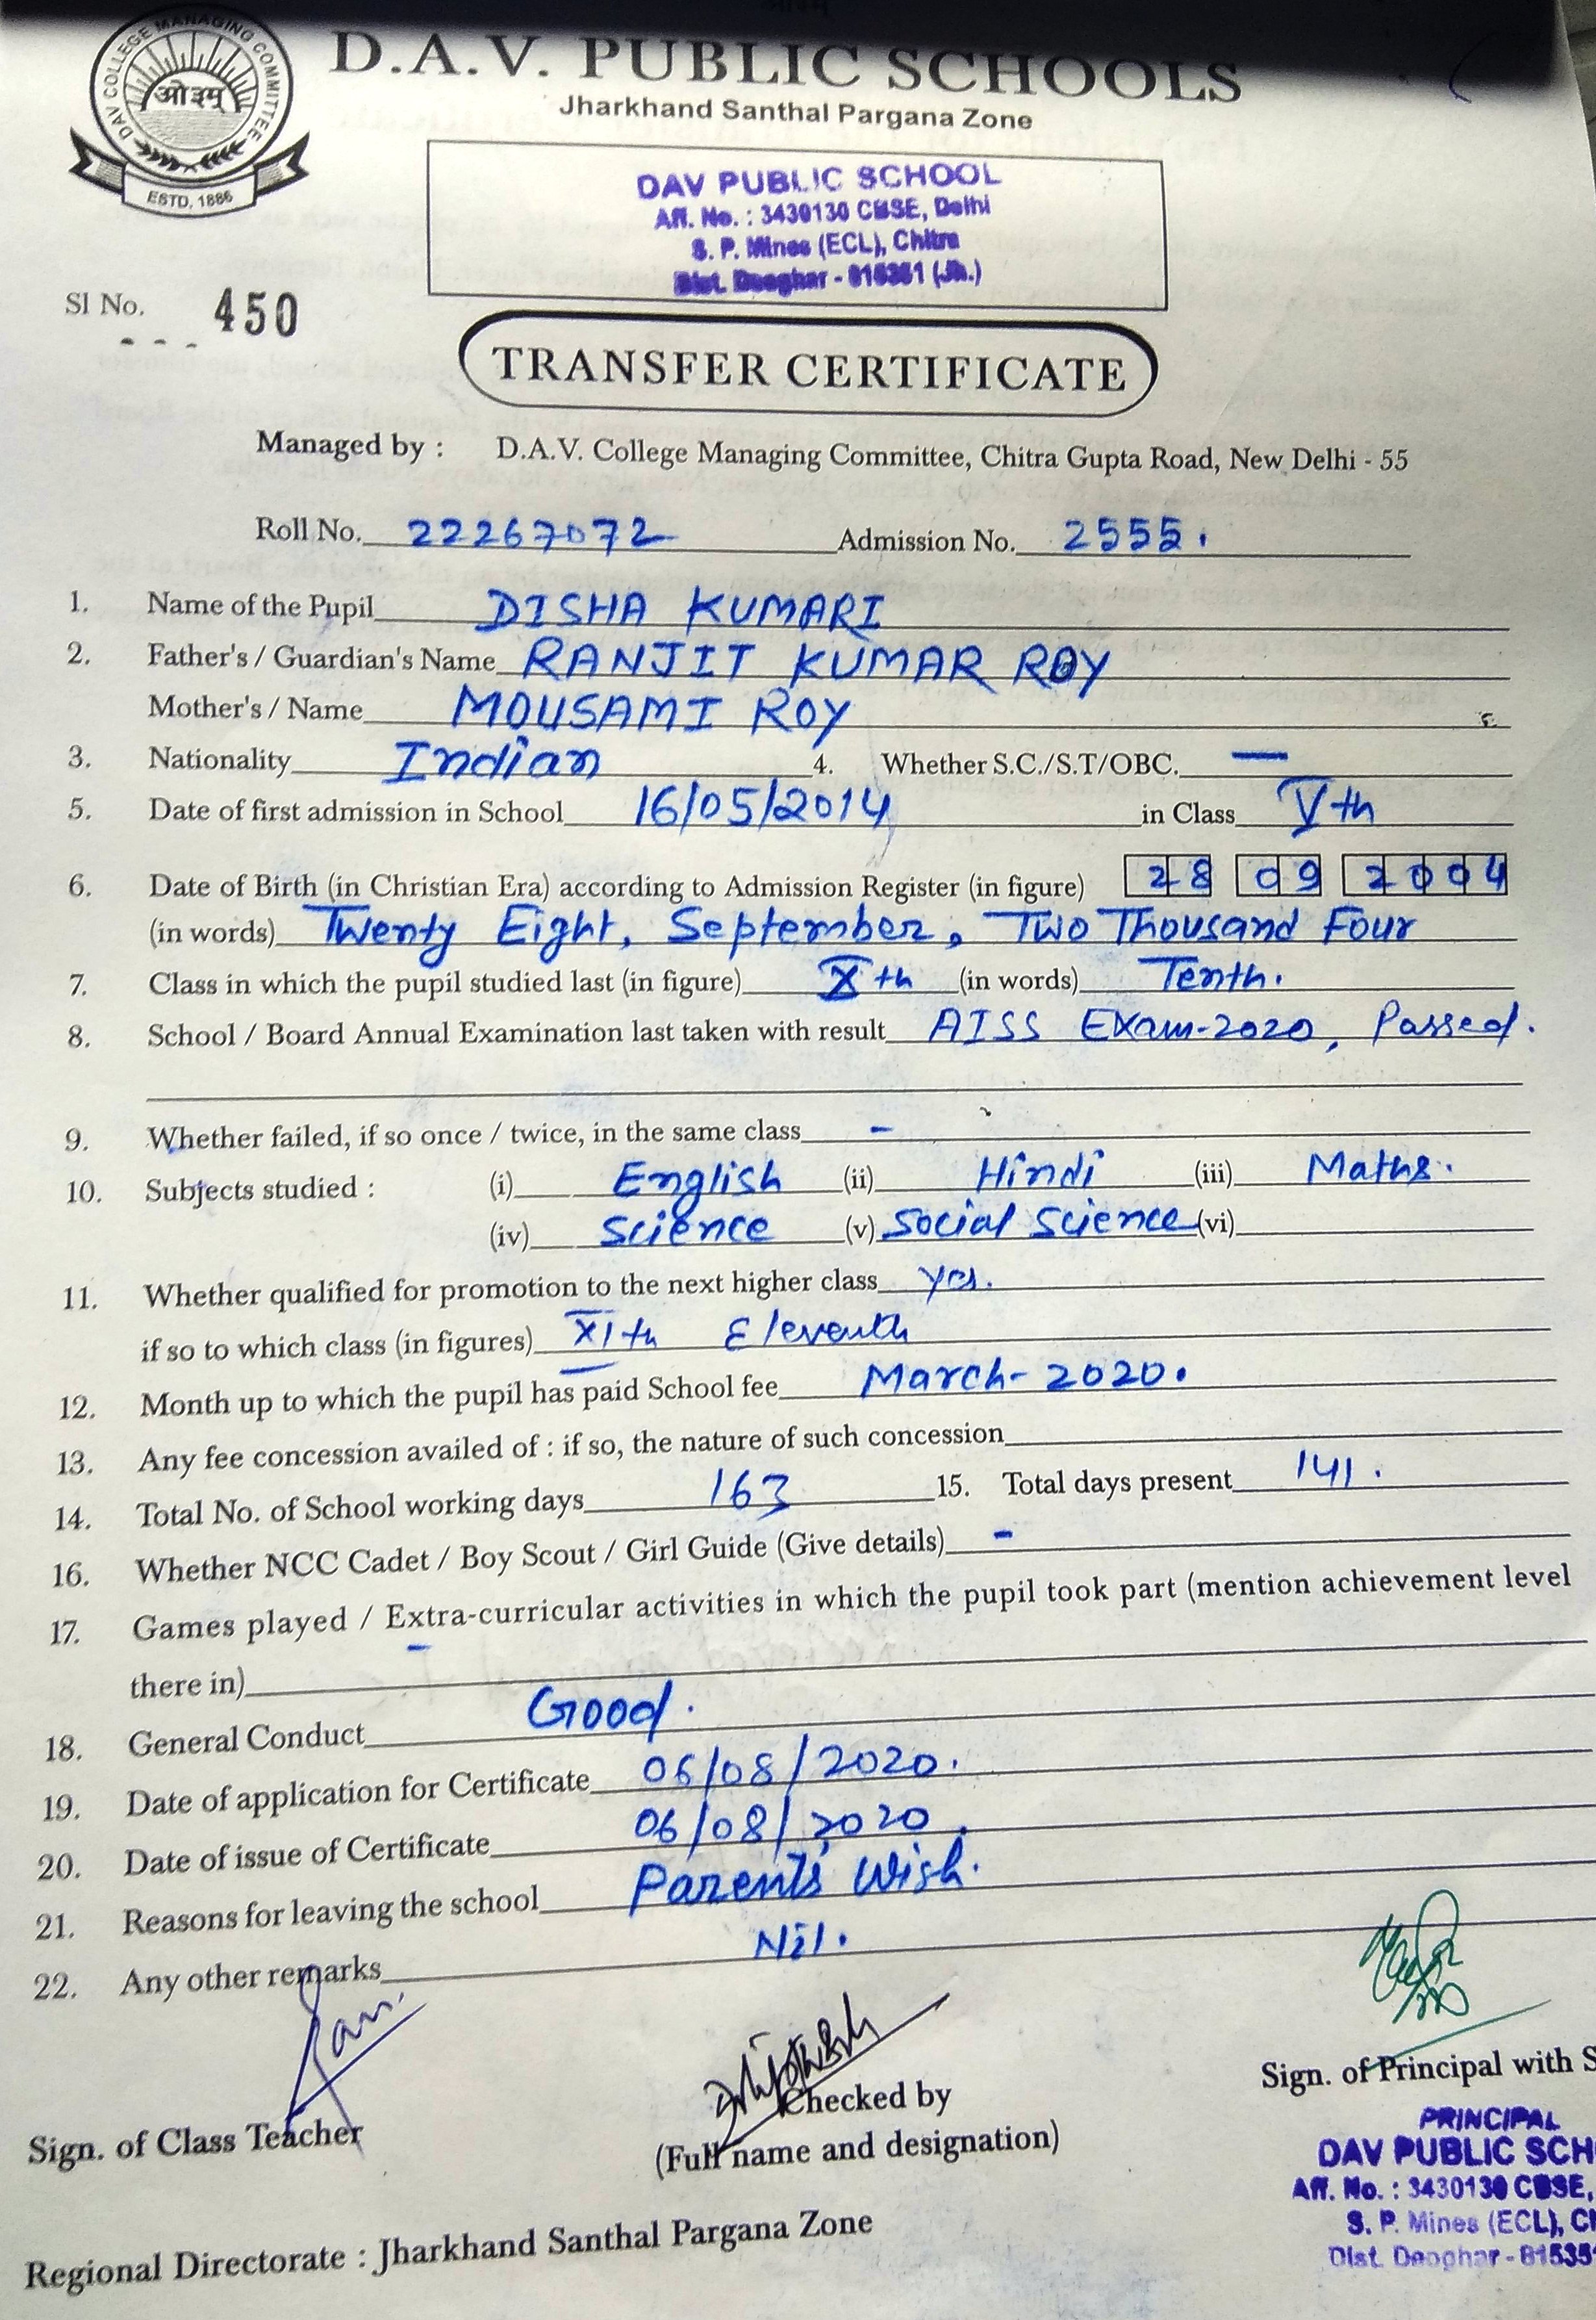 DAV COLLEGE MANAGING COMMITTEE
ओ३म्
ESTD. 1886
D.A.V. PUBLIC SCHOOLS
Jharkhand Santhal Pargana Zone
DAV PUBLIC SCHOOL
Aff. No. : 3430130 CBSE, Delhi
S. P. Mines (ECL), Chitra
Dist. Deoghar - 815351 (Jh.)
Sl No. 450
TRANSFER CERTIFICATE
Managed by : D.A.V. College Managing Committee, Chitra Gupta Road, New Delhi - 55
Roll No. 22267072 Admission No. 2555.
1. Name of the Pupil DISHA KUMARI
2. Father's / Guardian's Name RANJIT KUMAR ROY
Mother's / Name MOUSAMI ROY
3. Nationality Indian 4. Whether S.C./S.T/OBC. —
5. Date of first admission in School 16/05/2014 in Class Vth
6. Date of Birth (in Christian Era) according to Admission Register (in figure) 28 09 2004
(in words) Twenty Eight, September, Two Thousand Four
7. Class in which the pupil studied last (in figure) Xth (in words) Tenth.
8. School / Board Annual Examination last taken with result AISS Exam-2020, Passed.
9. Whether failed, if so once / twice, in the same class -
10. Subjects studied : (i) English (ii) Hindi (iii) Maths.
(iv) Science (v) Social Science (vi)
11. Whether qualified for promotion to the next higher class yes.
if so to which class (in figures) XIth Eleventh
12. Month up to which the pupil has paid School fee March-2020.
13. Any fee concession availed of : if so, the nature of such concession
14. Total No. of School working days 163 15. Total days present 141.
16. Whether NCC Cadet / Boy Scout / Girl Guide (Give details) -
17. Games played / Extra-curricular activities in which the pupil took part (mention achievement level
there in) -
18. General Conduct Good.
19. Date of application for Certificate 06/08/2020.
20. Date of issue of Certificate 06/08/2020.
21. Reasons for leaving the school Parent's Wish.
22. Any other remarks Nil.
Sign. of Class Teacher
Checked by
(Full name and designation)
Sign. of Principal with S
PRINCIPAL
DAV PUBLIC SCH
Aff. No. : 3430130 CBSE,
S. P. Mines (ECL), Ch
Dist. Deoghar - 81535
Regional Directorate : Jharkhand Santhal Pargana Zone